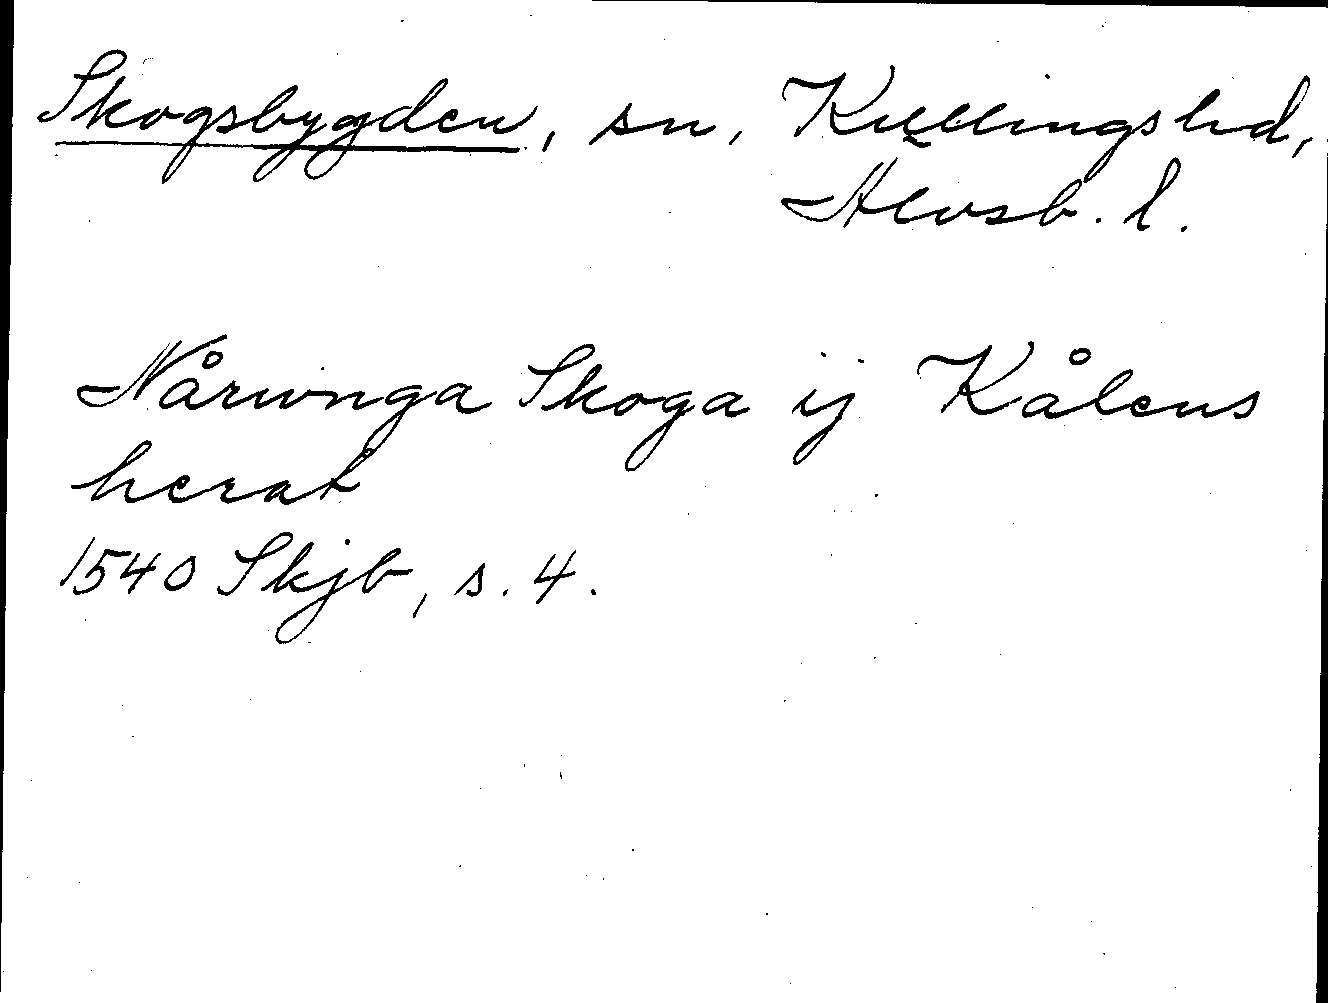 Skogsbygden, sn, Kullings hd,
Älvsb. l.
Nårunga Skoga ij Kålens
herat
1540 Skjb, s. 4.